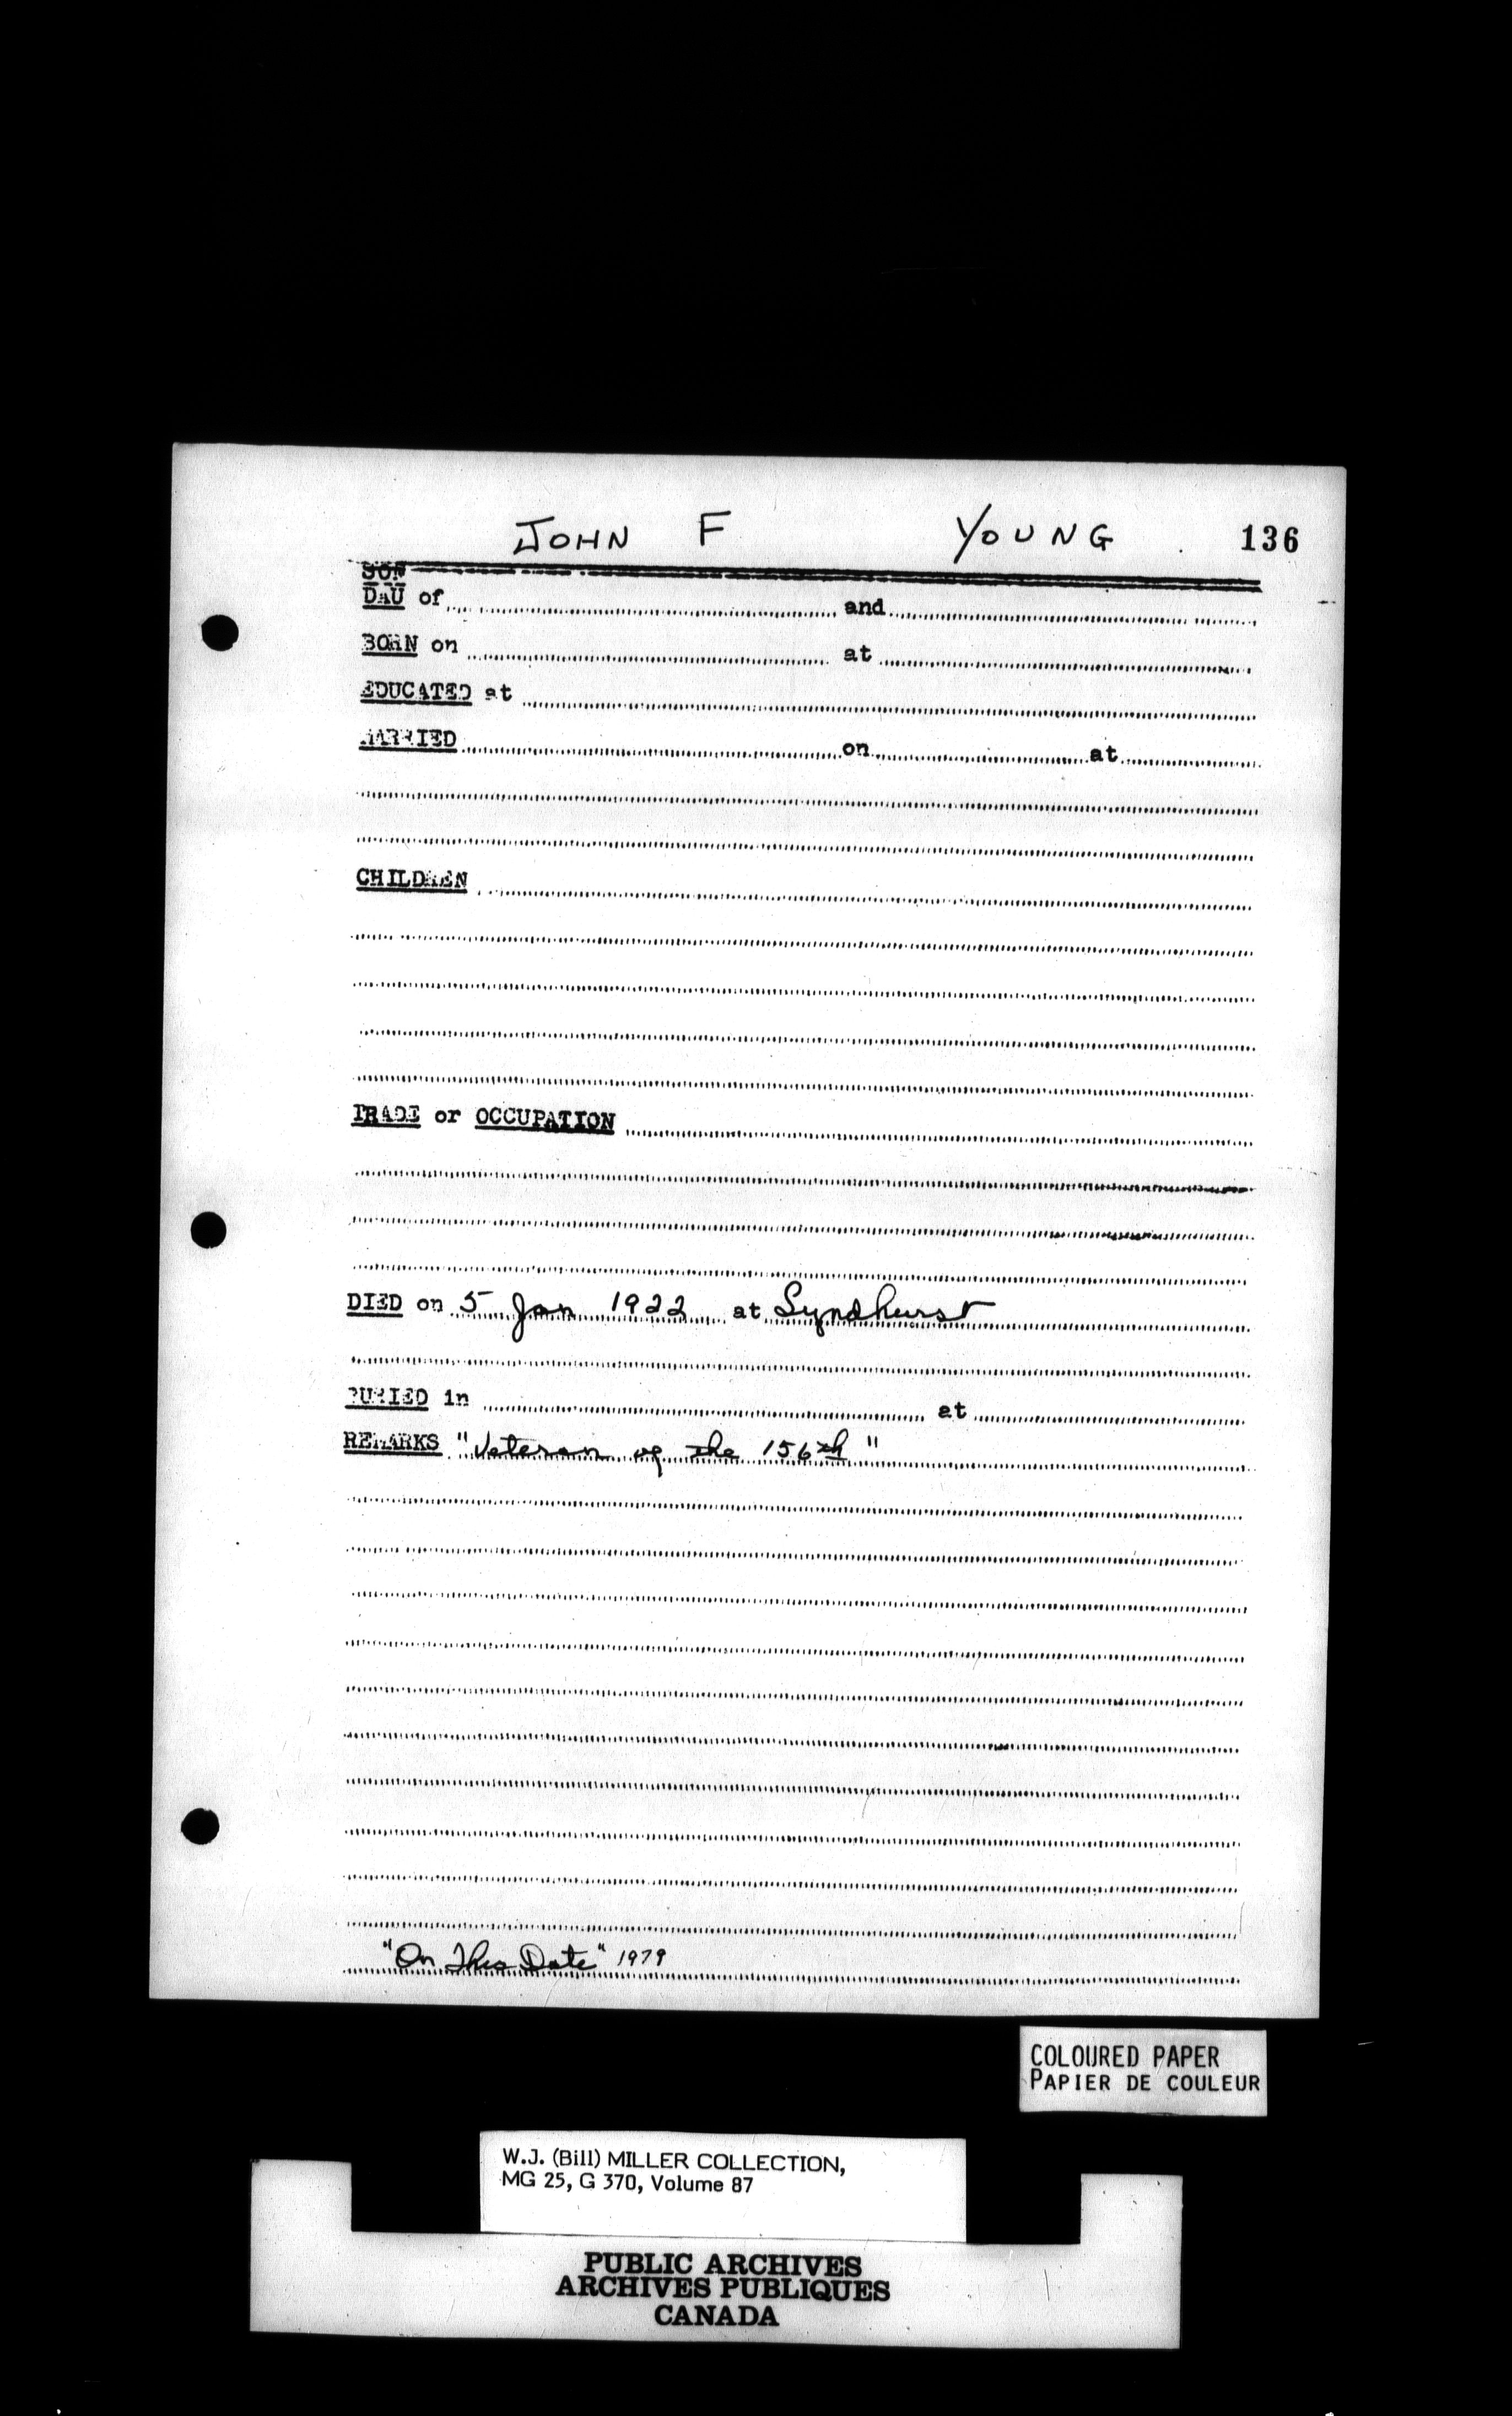 JOHN F YOUNG 136
SON
DAU of and
BORN on at
EDUCATED at
MARRIED on at
CHILDREN
TRADE or OCCUPATION
DIED on 5 Jan 1922 at Lyndhurst
BURIED in at
REMARKS "Veteran of the 156th"
"On This Date" 1979
COLOURED PAPER
PAPIER DE COULEUR
W.J. (Bill) MILLER COLLECTION,
MG 25, G 370, Volume 87
PUBLIC ARCHIVES
ARCHIVES PUBLIQUES
CANADA